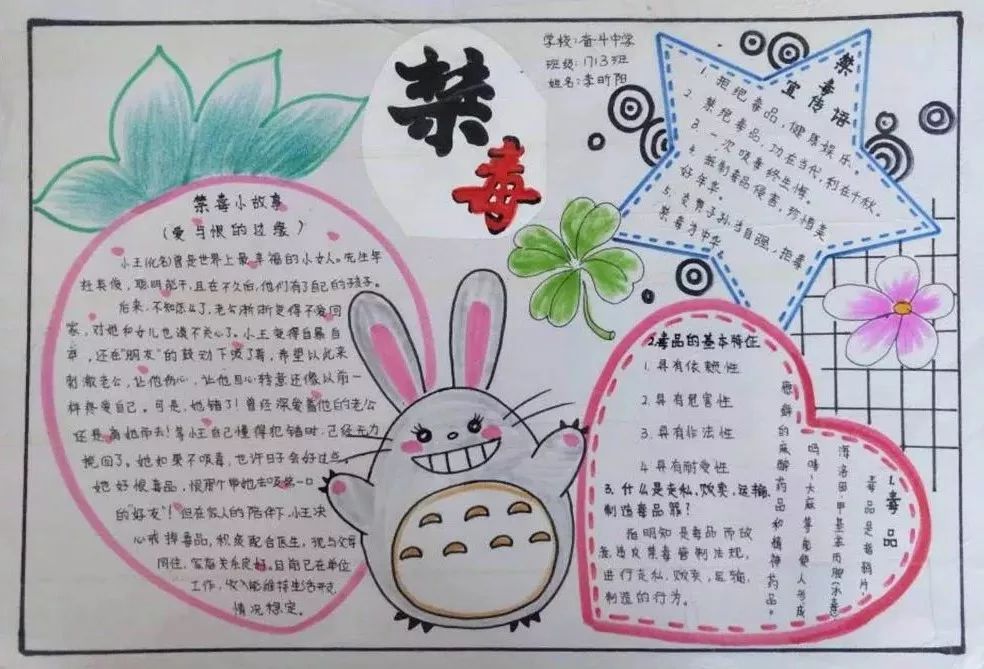 禁毒
学校:奋斗中学
班级:1713班
姓名:李昕阳
禁毒小故事
(爱与恨的过缘)
小王(化名)曾是世界上最幸福的小女人。先生年
轻英俊,聪明能干,且在不久后,他们有了自己的孩子。
后来,不知怎么了,老公渐渐变得不爱回
家,对她和女儿也漠不关心了。小王变得自暴自
弃,还在"朋友"的鼓动下吸了毒,希望以此来
刺激老公,让他伤心,让他回心转意还像以前一
样疼爱自己。可是,她错了!曾经深爱着他的老公
还是离她而去!等小王自己懂得犯错时,已经无力
挽回了。她如果不吸毒,也许日子会好过些。
她好恨毒品,恨那个带她去吸第一口
的"好友"!但在家人的陪伴下,小王决
心戒掉毒品,积极配合医生,现与父母
同住,家庭关系良好。目前已在单位
工作,收入能维持生活开支,
情况稳定。
禁毒宣传语
1. 拒绝毒品,健康娱乐。
2. 禁绝毒品,功在当代,利在千秋。
3. 一次吸毒终生悔。
4. 抵制毒品侵害,珍惜美
好年华。
5. 炎黄子孙当自强,拒毒
禁毒为中华。
1.毒品
毒品是指鸦片,
海洛因,甲基苯丙胺(冰毒)
吗啡、大麻等能使人形成
瘾癖的麻醉药品和精神药品。
2.毒品的基本特征
1.具有依赖性
2.具有危害性
3.具有非法性
4.具有耐受性
3.什么是走私,贩卖,运输,
制造毒品罪?
指明知是毒品而故
意违反禁毒管制法规,
进行走私,贩卖,运输,
制造的行为。